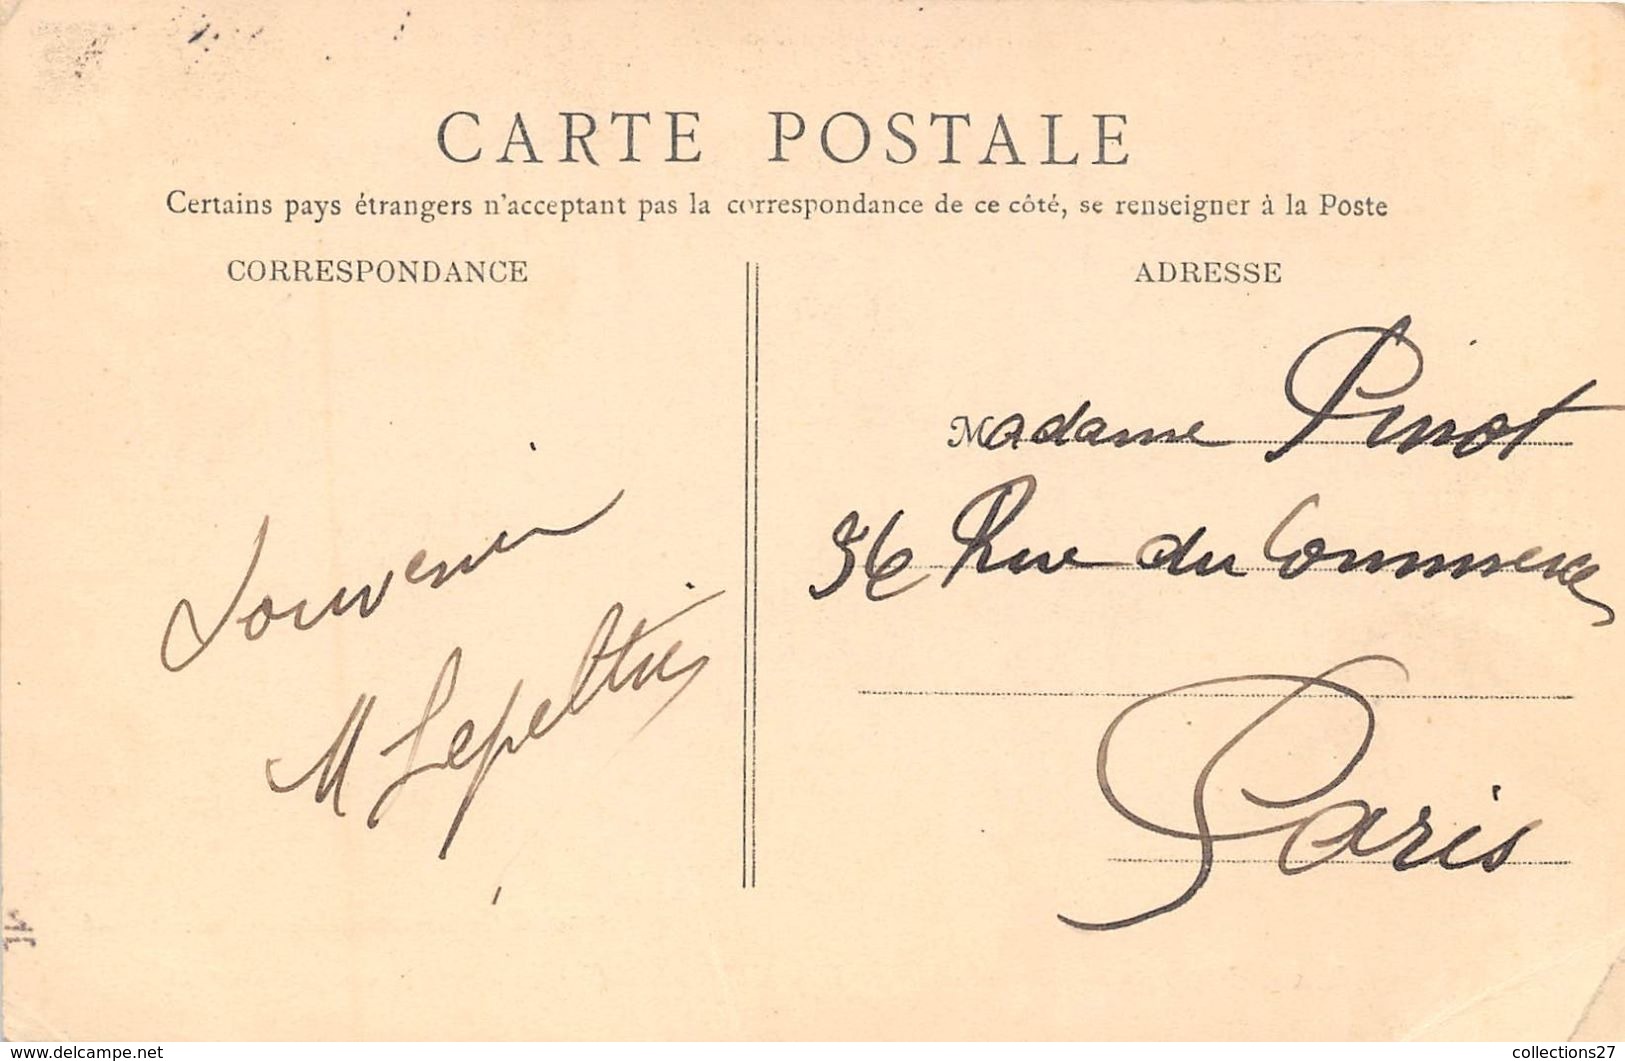 CARTE POSTALE
Certains pays étrangers n'acceptant pas la correspondance de ce côté, se renseigner à la Poste
CORRESPONDANCE
Souvenir
M Lepeltier
ADRESSE
Madame Pinot
36 Rue du Commerce
Paris
www.delcampe.net
collections27